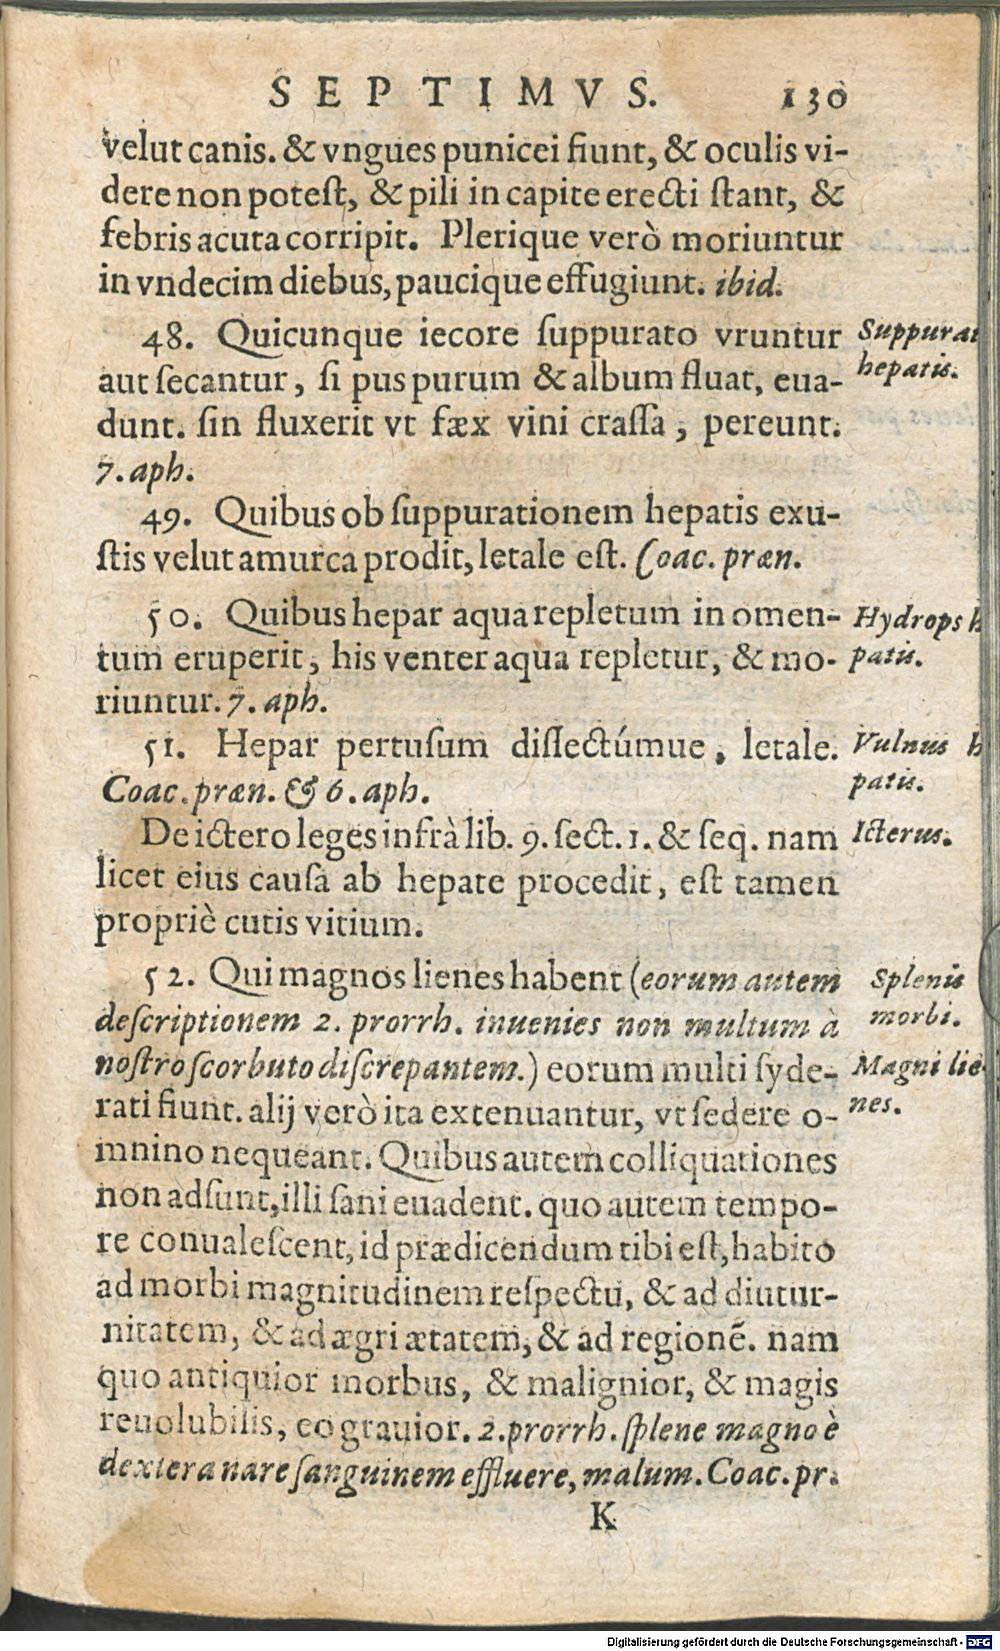 SEPTIMVS. 130
velut canis. & vngues punicei fiunt, & oculis vi-
dere non poteſt, & pili in capite erecti ſtant, &
febris acuta corripit. Plerique verò moriuntur
in vndecim diebus, paucique effugiunt. ibid.
48. Quicunque iecore ſuppurato vruntur
aut ſecantur, ſi pus purum & album fluat, eua-
dunt. ſin fluxerit vt fæx vini craſſa, pereunt.
7. aph.
Suppurat
hepatis.
49. Quibus ob ſuppurationem hepatis exu-
ſtis velut amurca prodit, letale eſt. Coac. præn.
50. Quibus hepar aqua repletum in omen-
tum eruperit, his venter aqua repletur, & mo-
riuntur. 7. aph.
Hydrops h
patis.
51. Hepar pertuſum diſſectúmue, letale.
Coac. præn. & 6. aph.
Vulnus h
patis.
De ictero leges infrà lib. 9. ſect. 1. & ſeq. nam
licet eius cauſa ab hepate procedit, eſt tamen
propriè cutis vitium.
Icterus.
52. Qui magnos lienes habent (eorum autem
deſcriptionem 2. prorrh. inuenies non multum à
noſtro ſcorbuto diſcrepantem.) eorum multi ſyde-
rati fiunt. alij verò ita extenuantur, vt ſedere o-
mnino nequeant. Quibus autem colliquationes
non adſunt, illi ſani euadent. quo autem tempo-
re conualeſcent, id prædicendum tibi eſt, habito
ad morbi magnitudinem reſpectu, & ad diutur-
nitatem, & ad ægri ætatem, & ad regionē. nam
quo antiquior morbus, & malignior, & magis
reuolubilis, eo grauior. 2. prorrh. ſplene magno è
dextera nare ſanguinem effluere, malum. Coac. pr.
Splenis
morbi.
Magni lie-
nes.
K
Digitalisierung gefördert durch die Deutsche Forschungsgemeinschaft - DFG